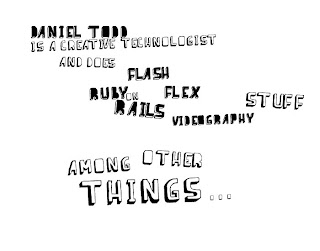 DANIEL TODD
IS A CREATIVE TECHNOLOGIST
AND DOES
FLASH
RUBY ON FLEX STUFF
RAILS
VIDEOGRAPHY
AMONG OTHER
THINGS...